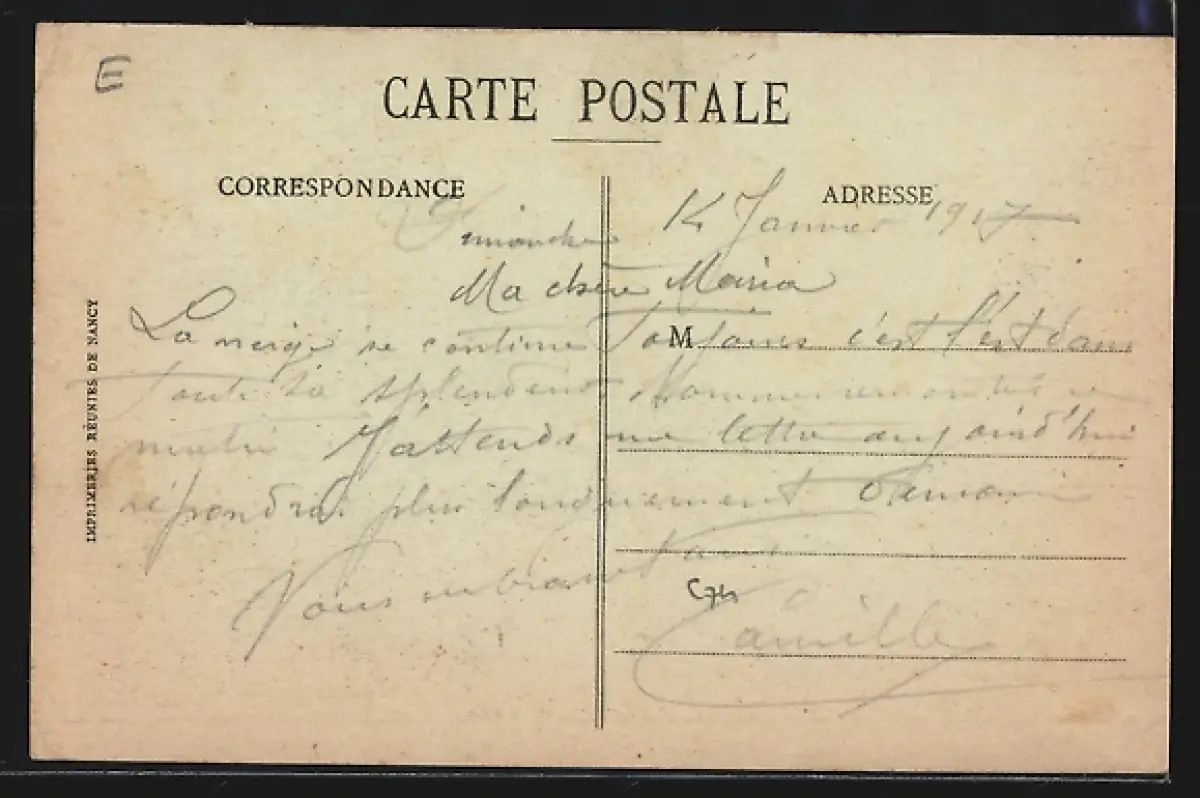 E
CARTE POSTALE
CORRESPONDANCE
ADRESSE
Dimanche 14 Janvier 1917
Ma chère Maria
M
La neige se continue toujours c'est l'est dans
toute sa splendeur
matin J'attends une lettre aujourd'hui
répondrai plus longuement demain
Vous embrassant
C74
Camille
IMPRIMERIES RÉUNIES DE NANCY